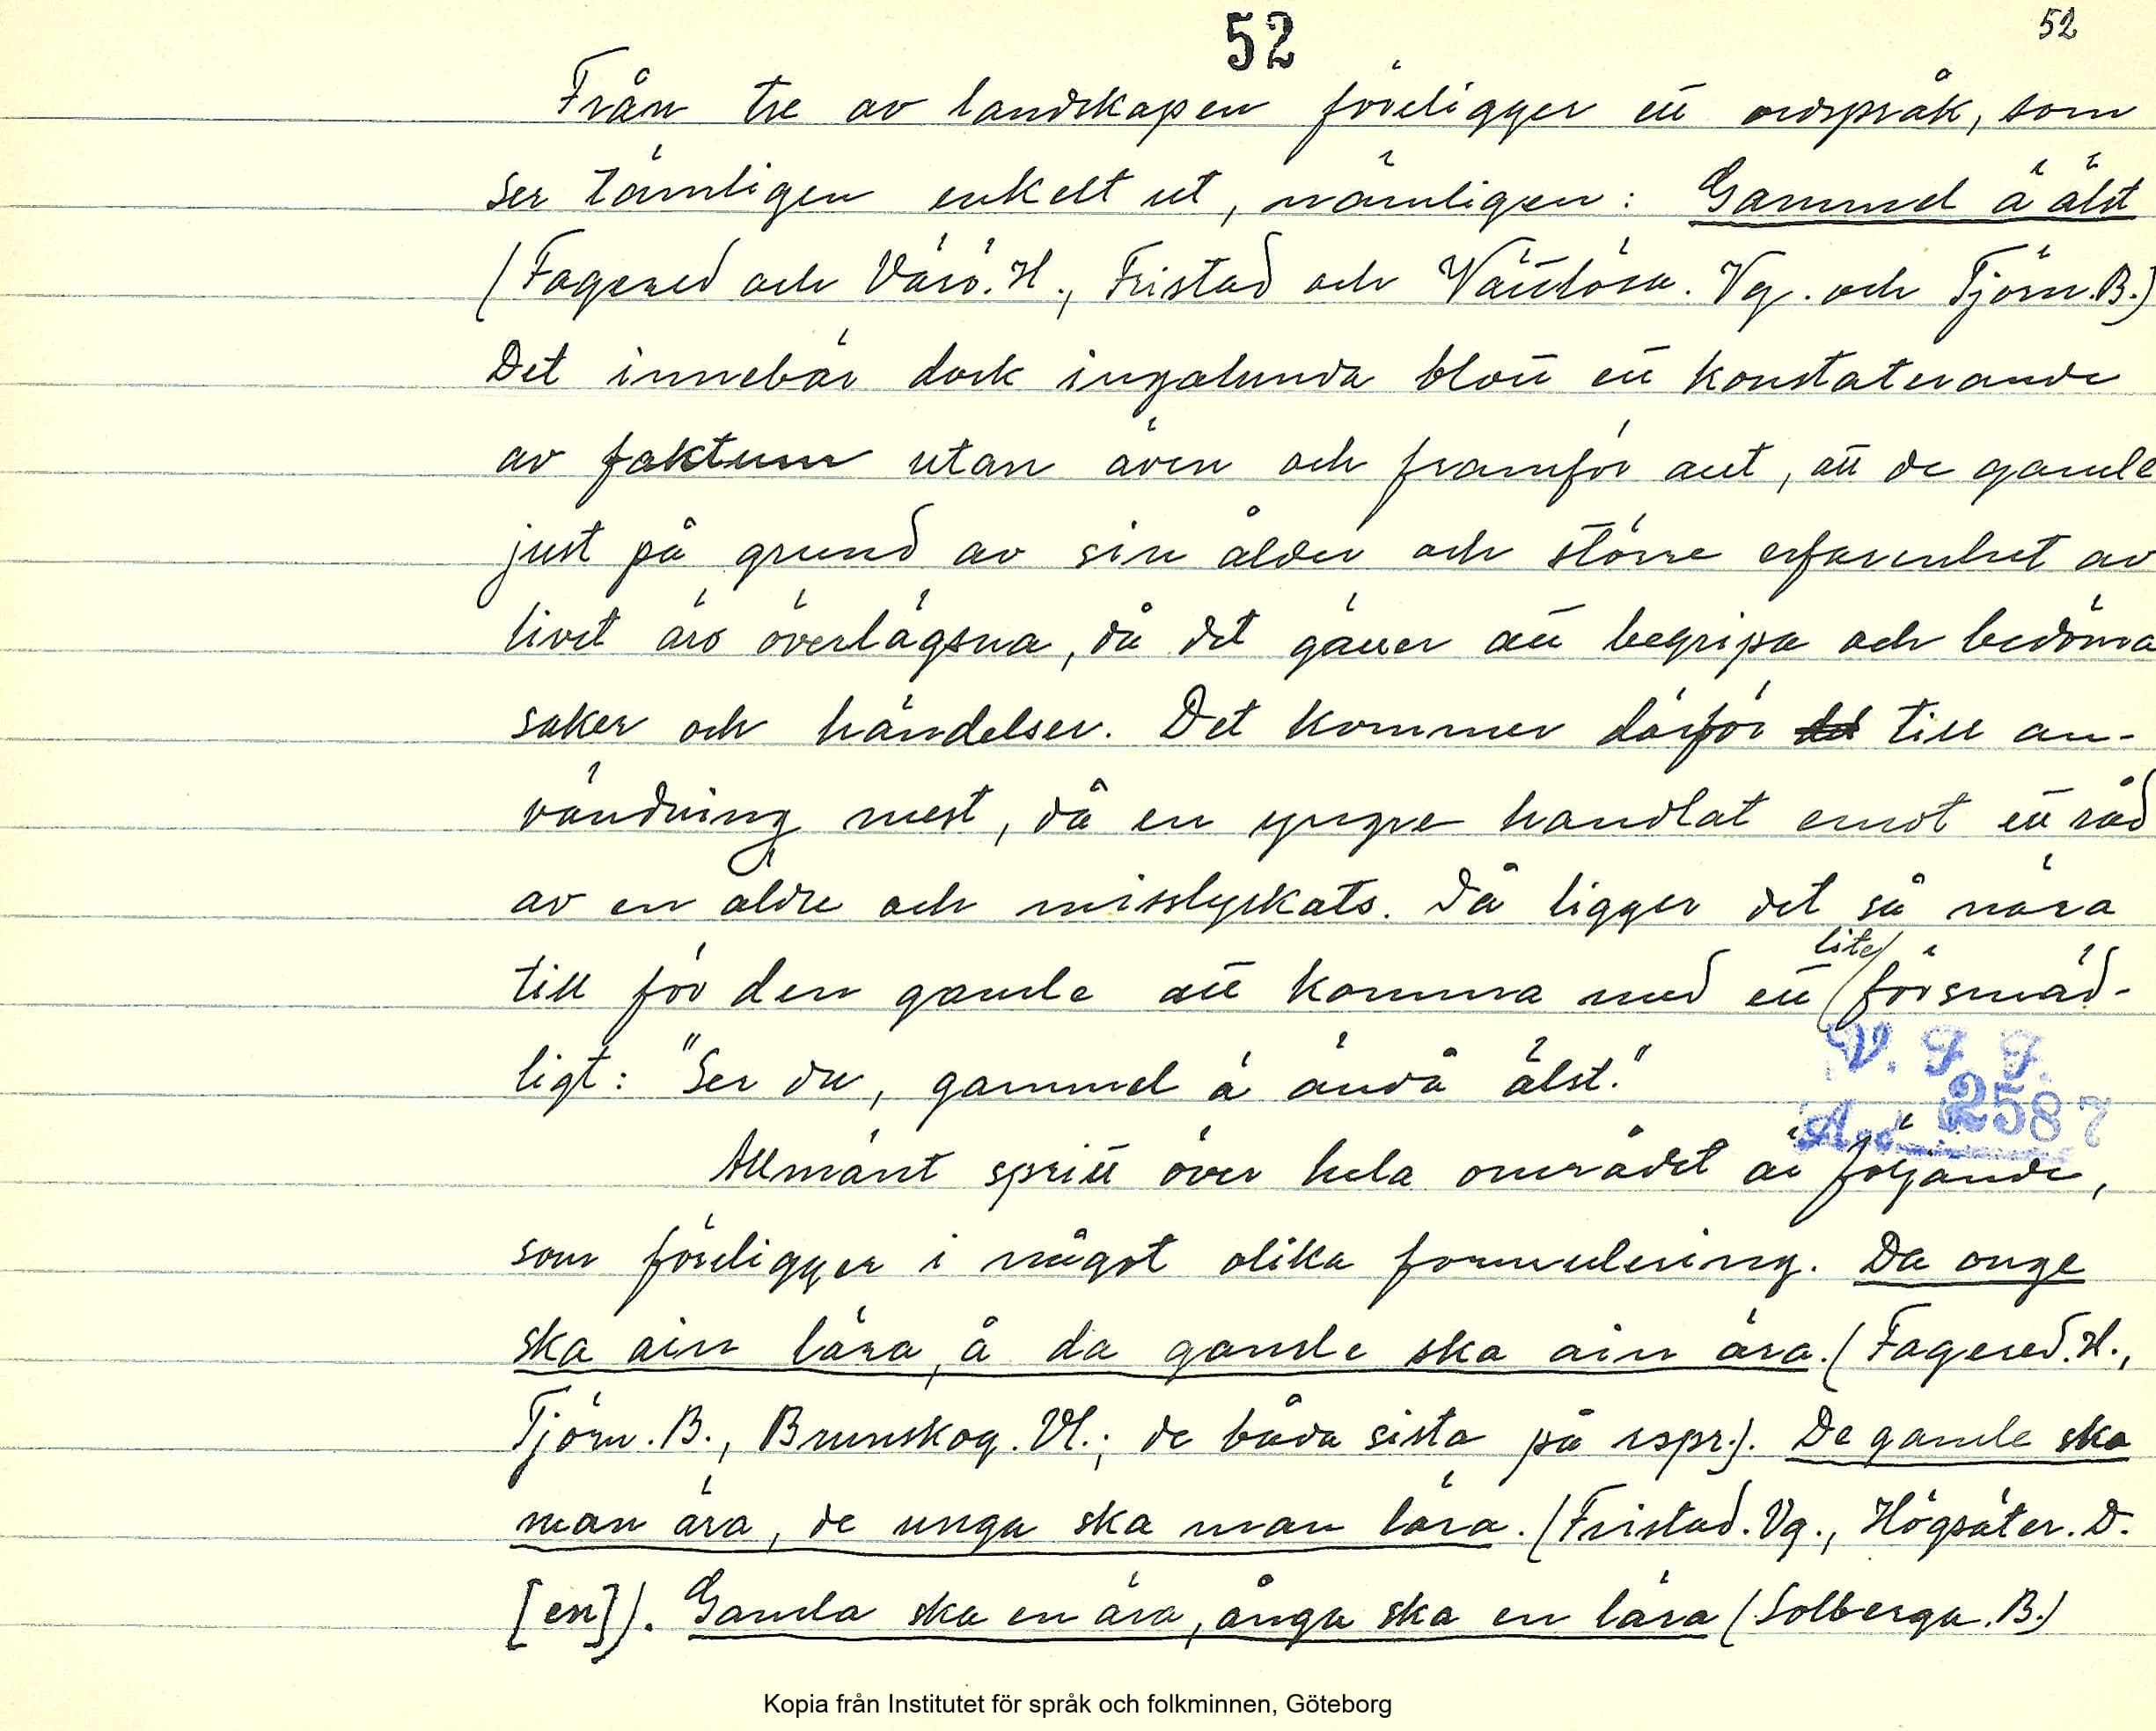 52
52
Från tre av landskapen föreligger ett ordspråk, som
ser tämligen enkelt ut, nämligen: Gammel ä älst
(Fagered och Värö. H., Fristad och Vättlösa. Vg. och Tjörn. B.)
Det innebär dock ingalunda blott ett konstaterande
av faktum utan även och framför allt, att de gamle
just på grund av sin ålder och större erfarenhet av
livet äro överlägsna, då det gäller att begripa och bedöma
saker och händelser. Det kommer därför till an-
vändning mest, då en yngre handlat emot ett råd
av en äldre och misslyckats. Då ligger det så nära
till för den gamle att komma med ett lite försmäd-
ligt: "Ser du, gammel ä ändå älst."
V. F. F.
Acc 2587
Allmänt spritt över hela området är följande,
som föreligger i något olika formulering. Da onge
ska ain lära, å da gamle ska ain ära. (Fagered. H.,
Tjörn. B., Brunskog. Vl.; de båda sista på rspr.). De gamle ska
man ära, de unga ska man lära. (Fristad. Vg., Högsäter. D.
[en]). Gamla ska en ära, ånga ska en lära (Solberga. B.)
Kopia från Institutet för språk och folkminnen, Göteborg